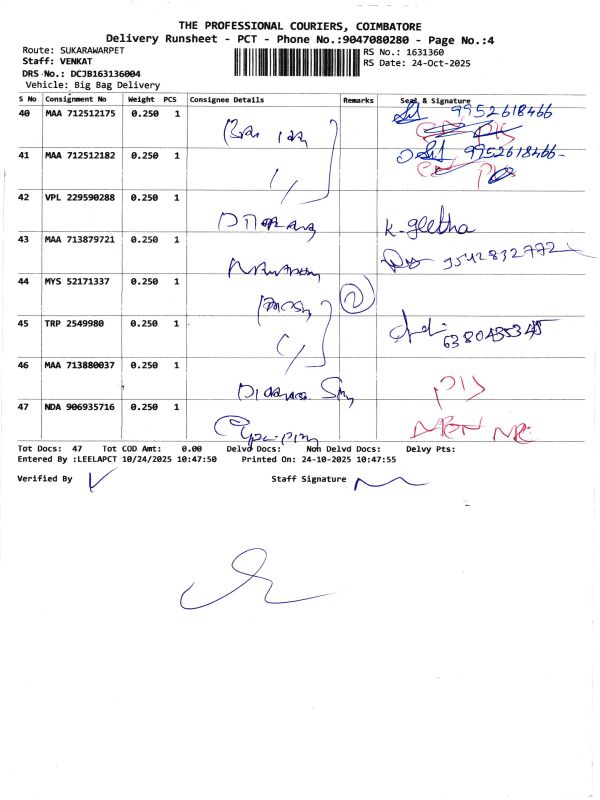 THE PROFESSIONAL COURIERS, COIMBATORE
Delivery Runsheet - PCT - Phone No.:9047080280 - Page No.:4
Route: SUKARAWARPET
RS No.: 1631360
Staff: VENKAT
RS Date: 24-Oct-2025
DRS No.: DCJB163136004
Vehicle: Big Bag Delivery
S No Consignment No Weight PCS Consignee Details Remarks Seal & Signature
40 MAA 712512175 0.250 1 9952618466
41 MAA 712512182 0.250 1 9952618466-
42 VPL 229590288 0.250 1 K. geetha
43 MAA 713879721 0.250 1 9542832772
44 MYS 52171337 0.250 1 2
45 TRP 2549980 0.250 1 6380435345
46 MAA 713880037 0.250 1
47 NDA 906935716 0.250 1
Tot Docs: 47 Tot COD Amt: 0.00 Delvd Docs: Non Delvd Docs: Delvy Pts:
Entered By :LEELAPCT 10/24/2025 10:47:50 Printed On: 24-10-2025 10:47:55
Verified By
Staff Signature